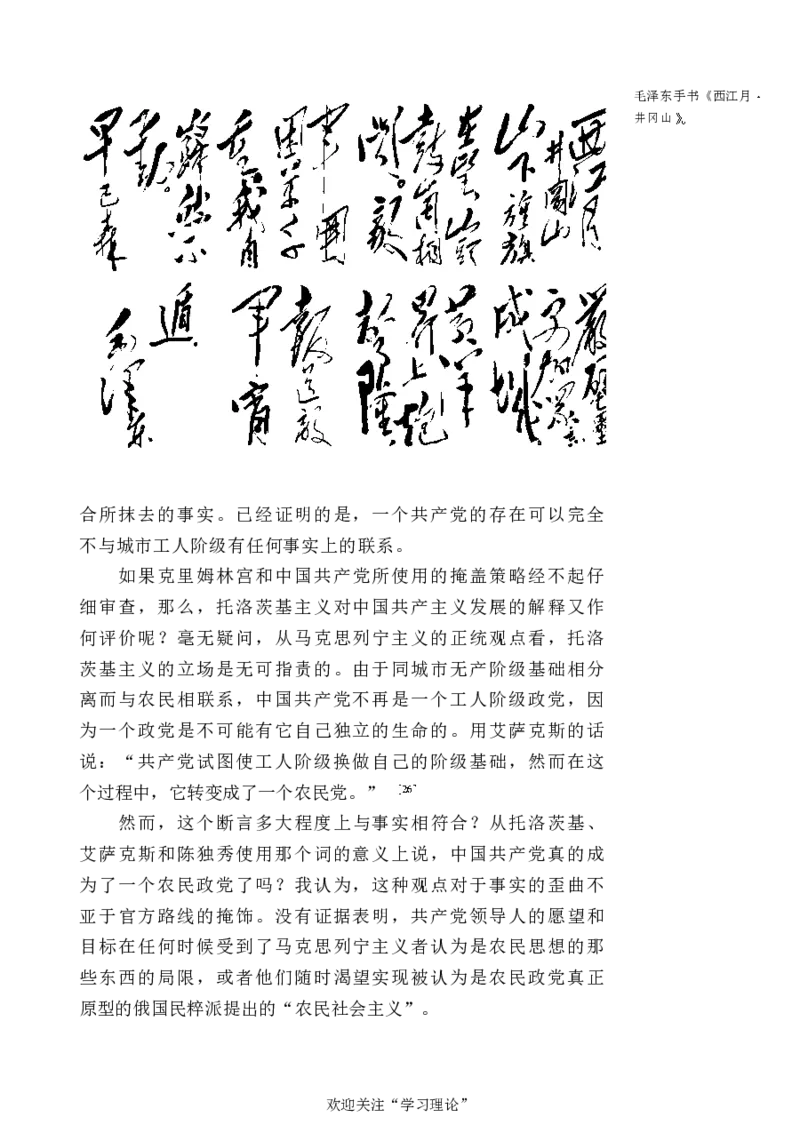 毛泽东手书《西江月·
井冈山》。
西江月
井岡山
山下旌旗
在望山頭
鼓角相
聞。敵
軍圍
困萬千
重我自
巋然不
動。
早已森
嚴壁壘
更加眾志
成城
黃羊
界上炮
聲隆
報道敵
軍宵
遁
毛澤東
合所抹去的事实。已经证明的是，一个共产党的存在可以完全
不与城市工人阶级有任何事实上的联系。
如果克里姆林宫和中国共产党所使用的掩盖策略经不起仔
细审查，那么，托洛茨基主义对中国共产主义发展的解释又作
何评价呢？毫无疑问，从马克思列宁主义的正统观点看，托洛
茨基主义的立场是无可指责的。由于同城市无产阶级基础相分
离而与农民相联系，中国共产党不再是一个工人阶级政党，因
为一个政党是不可能有它自己独立的生命的。用艾萨克斯的话
说：“共产党试图使工人阶级换做自己的阶级基础，然而在这
个过程中，它转变成了一个农民党。” [26]
然而，这个断言多大程度上与事实相符合？从托洛茨基、
艾萨克斯和陈独秀使用那个词的意义上说，中国共产党真的成
为了一个农民政党了吗？我认为，这种观点对于事实的歪曲不
亚于官方路线的掩饰。没有证据表明，共产党领导人的愿望和
目标在任何时候受到了马克思列宁主义者认为是农民思想的那
些东西的局限，或者他们随时渴望实现被认为是农民政党真正
原型的俄国民粹派提出的“农民社会主义”。
欢迎关注“学习理论”